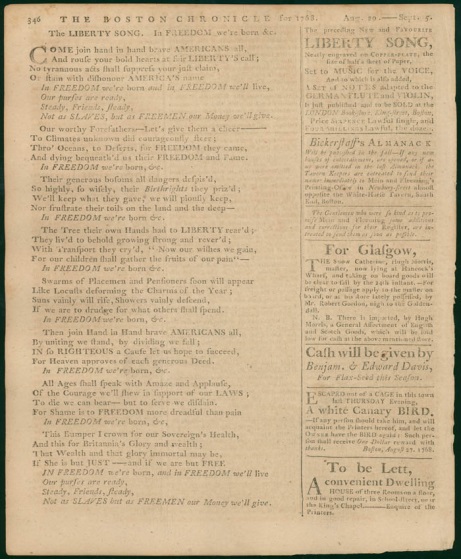 346 THE BOSTON CHRONICLE for 1768. Aug. 29 — Sept. 5.
The LIBERTY SONG. In FREEDOM we're born &c.
COME join hand in hand brave AMERICANS all,
And rouse your bold hearts at fair LIBERTY's call;
No tyrannous acts shall suppress your just claim,
Or stain with dishonour AMERICA's name
In FREEDOM we're born and in FREEDOM we'll live,
Our purses are ready,
Steady, Friends, steady,
Not as SLAVES, but as FREEMEN our Money we'll give.
Our worthy Forefathers—Let's give them a cheer
To Climates unknown did courageously steer;
Thro' Oceans, to Deserts, for FREEDOM they came,
And dying bequeath'd us their FREEDOM and Fame.
In FREEDOM we're born, &c.
Their generous bosoms all dangers despis'd,
So highly, so wisely, their Birthrights they priz'd;
We'll keep what they gave, we will piously keep,
Nor frustrate their toils on the land and the deep—
In FREEDOM we're born &c.
The Tree their own Hands had to LIBERTY rear'd;
They liv'd to behold growing strong and rever'd;
With Transport they cry'd, " Now our wishes we gain,
For our children shall gather the fruits of our pain"—
In FREEDOM we're born, &c.
Swarms of Placemen and Pensioners soon will appear
Like Locusts deforming the Charms of the Year;
Suns vainly will rise, Showers vainly descend,
If we are to drudge for what others shall spend.
In FREEDOM we're born, &c.
Then join Hand in Hand brave AMERICANS all,
By uniting we stand, by dividing we fall;
IN so RIGHTEOUS a Cause let us hope to succeed,
For Heaven approves of each generous Deed.
In FREEDOM we're born, &c.
All Ages shall speak with Amaze and Applause,
Of the Courage we'll shew in support of our LAWS;
To die we can bear—but to serve we disdain.
For Shame is to FREEDOM more dreadful than pain
In FREEDOM we're born, &c.
This Bumper I crown for our Sovereign's Health,
And this for Britannia's Glory and Wealth;
That Wealth and that glory immortal may be,
If She is but JUST—and if we are but FREE.
IN FREEDOM we're born, and in FREEDOM we'll live
Our purses are ready,
Steady, Friends, steady,
Not as SLAVES but as FREEMEN our Money we'll give.
The preceding New and Favourite
LIBERTY SONG,
Neatly engraved on COPPER-PLATE, the
size of half a sheet of Paper,
Set to MUSIC for the VOICE,
And to which is also added,
A Set of NOTES adapted to the
GERMAN FLUTE and VIOLIN,
Is just published and to be SOLD at the
LONDON Book-store, King-street, Boston,
Price Sixpence Lawful single, and
Bickerstaff's ALMANACK
Will be published in the
For Glasgow,
THE Snow Catherine,
master, now lying at Hancock's
Wharf, and taking on board goods will
be clear to sail by the 25th instant. For
freight or passage apply to the master on
board, or at his store lately possessed, by
Mr. Robert Gordon, nigh to the Golden-
N. B. There is imported, by Hugh
a General Assortment of English
and Scotch Goods, which will be sold
low for cash at the above mentioned store.
Cash will be given by
Benjam. & Edward Davis,
For Flax-Seed this Season.
ESCAPED out of a CAGE in this town
last THURSDAY Evening,
A white Canary BIRD,
—If any person should take him, and will
acquaint the Printers hereof, and let the
Owner have the BIRD again: Such per-
son shall receive One Dollar reward with
thanks. Boston, August 27, 1768.
To be Lett,
A convenient Dwelling
HOUSE of three Rooms on a floor,
and in good repair, in School-street, near
the King's Chapel.—Enquire of the
Printers.